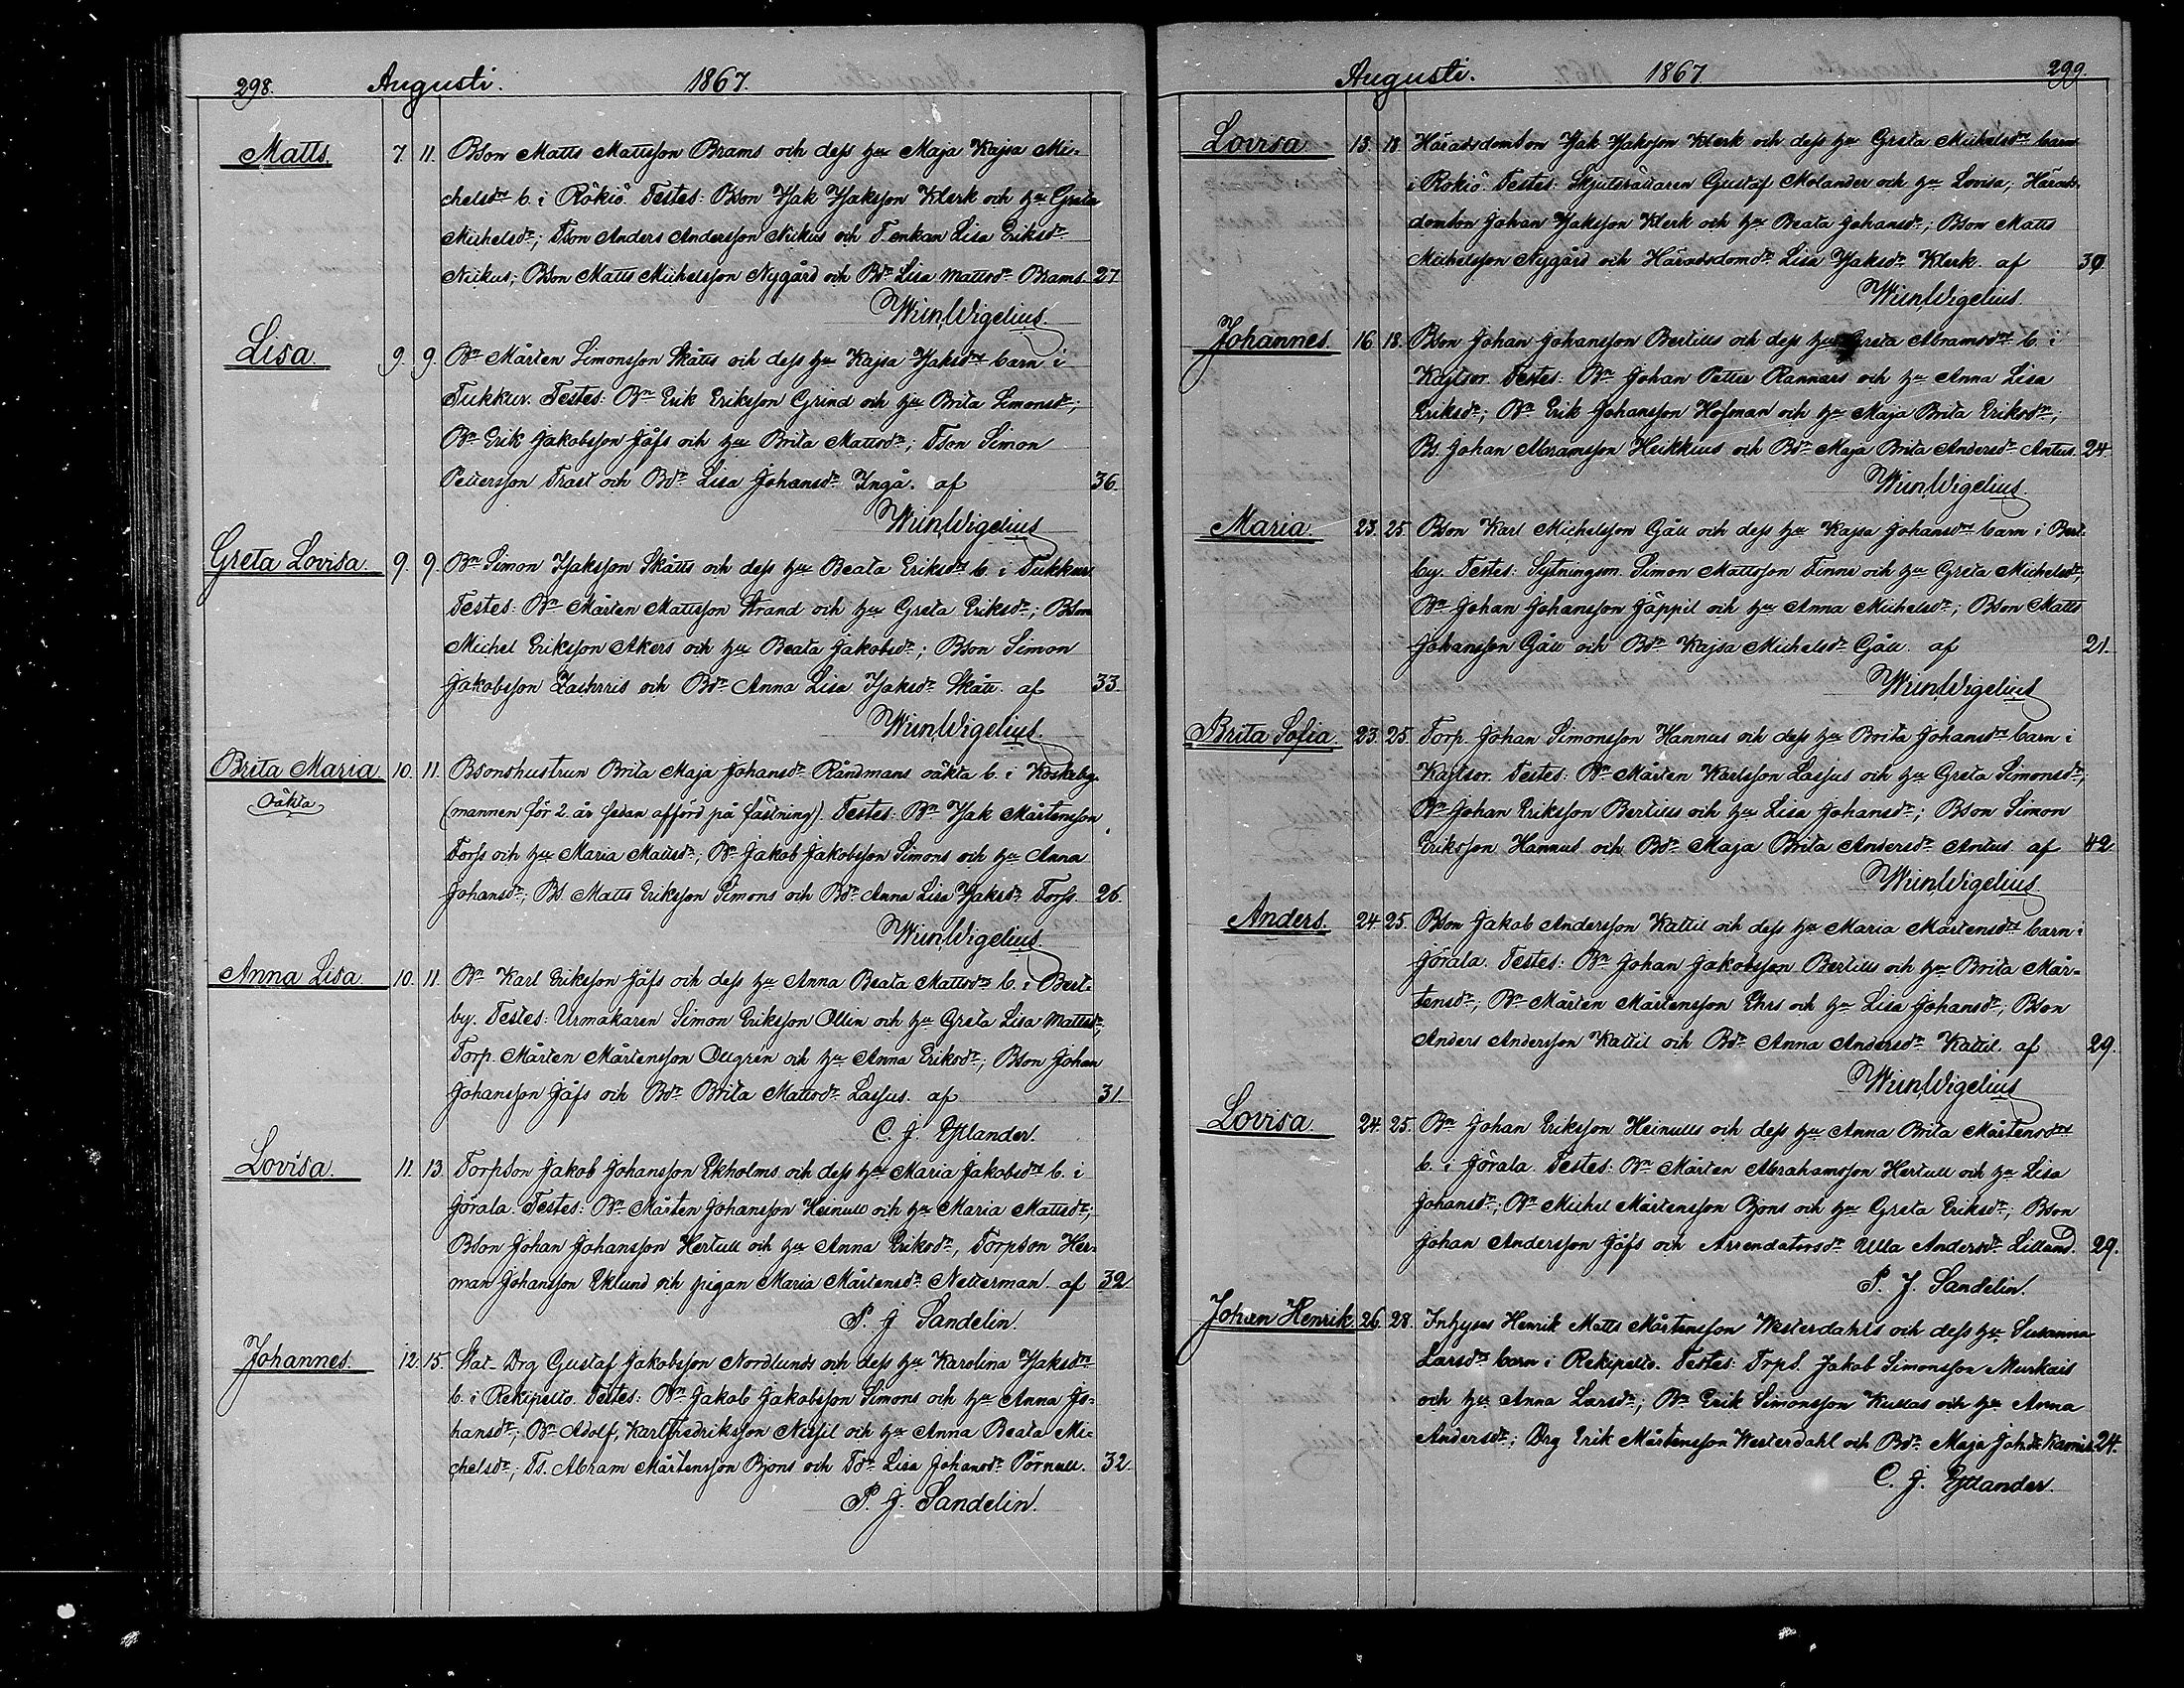 298. Augusti. 1867.
Matts. 7. 11. Bson Matts Mattsson Brams och dess hu Maja Kajsa Mi-
chelsdrs b. i Rökiö. Testes: Bson Isak Isaksson Klerk och hu Greta
Michelsdr; Tson Anders Andersson Nikus och Tenkan Lisa Eriksdr
Nikus; Bson Matts Michelsson Nygård och Bdr Lisa Mattsdr Brams. 27
Wiin,Wigelius.
Lisa. 9. 9. Bn Mårten Simonsson Skåtts och dess hu Kajsa Isaksdrs barn i
Tukkur. Testes: Bn Erik Eriksson Grind och hu Brita Simonsdr;
Bn Erik Jakobsson Jåfs och hu Brita Mattsdr; Tson Simon
Pettersson Trast och Bdr Lisa Johansdr Ingå. af 36.
Wiin,Wigelius
Greta Lovisa. 9. 9. Bn Simon Isaksson Skåtts och dess hu Beata Eriksdrs b. i Tukkur.
Testes: Bn Mårten Mattsson Strand och hu Greta Eriksdr; Bson
Michel Eriksson Akers och hu Beata Jakobsdr; Bson Simon
Jakobsson och Bdr Anna Lisa Isaksdr Skått. af 33.
Wiin,Wigelius.
Brita Maria 10. 11. Bsonshustrun Brita Maja Johansdr Råndmans oäkta b. i Koskeby.
Oäkta (mannen för 2. år sedan afförd på fästning). Testes: Bn Isak Mårtensson
Torss och hu Maria Mattsdr; Bn Jakob Jakobsson Simons och hu Anna
Johansdr; Bs. Matts Eriksson Simons och Bdr Anna Lisa Isaksdr Torss. 26.
Wiin,Wigelius.
Anna Lisa. 10. 11. Bn Karl Eriksson Jåfs och dess hu Anna Beata Mattsdrs b. i Bert-
by. Testes: Urmakaren Simon Eriksson Ollin och hu Greta Lisa Mattsdr;
Torp. Mårten Mårtensson Ollgrén och hu Anna Eriksdr; Bson Johan
Johansson Jåfs och Bdr Brita Mattsdr Lassus. af 31.
C. J. Estlander.
Lovisa. 11. 13. Torpson Jakob Johansson Ekholms och dess hu Maria Jakobsdrs b. i
Jörala. Testes: Bn Mårten Johansson Heinull och hu Maria Mattsdr;
Bson Johan Johansson Hertull och hu Anna Eriksdr, Torpson Her-
man Johansson Eklund och pigan Maria Mårtensdr Netterman. af 32
P. J. Sandelin.
Johannes. 12. 15. Stat-Drg Gustaf Jakobsson Nordlunds och dess hu Karolina Isaksdrs
b. i Rekipelto. Testes: Bn Jakob Jakobsson Simons och hu Anna Jo-
hansdr; Bn Adolf, Karl Fredriksson Nissil och hu Anna Beata Mi-
chelsdr; Ts. Abram Mårtensson Bjons och Tdr Lisa Johansdr Pörnull. 32.
P. J. Sandelin.
Augusti. 1867. 299.
Lovisa 13. 18 Häradsdomson Isak Isaksson Klerk och dess hu Greta Michelsdrs barn
i Rökiö. Testes: Skjutsrättaren Gustaf Molander och hu Lovisa; Härads-
domson Johan Isaksson Klerk och hu Beata Johansdr; Bson Matts
Michelsson Nygård och Häradsdomdr Lisa Isaksdr Klerk. af 30
Wiin,Wigelius.
Johannes. 16. 18. Bson Johan Johansson Bertills och dess hu Greta Abramsdrs b. i
Kaitsor. Testes: Bn Johan Petter Rannars och hu Anna Lisa
Eriksdr; Bn Erik Johansson Hofman och hu Maja Brita Eriksdr;
Bs. Johan Abramsson Heikkius och Bdr Maja Brita Andersdr Antus. 24
Wiin,Wigelius.
Maria. 23. 25. Bson Karl Michelsson Gåll och dess hu Kajsa Johansdrs barn i Bert-
by. Testes: Sytningsm. Simon Mattsson Finne och hu Greta Michelsdr;
Bn Johan Johansson Jäppil och hu Anna Michelsdr; Bson Matts
Johansson Gåll och Bdr Kajsa Michelsdr Gåll. af 21
Wiin,Wigelius
Brita Sofia. 23. 25. Torp. Johan Simonsson Hannus och dess hu Brita Johansdrs barn i
Kaitsor. Testes: Bn Mårten Karlsson Lassus och hu Greta Simonsdr;
Bn Johan Eriksson Bertills och hu Lisa Johansdr; Bson Simon
Eriksson Hannus och Bdr Maja Brita Andersdr Antus. af 42
Wiin,Wigelius
Anders. 24. 25. Bson Jakob Andersson Kattil och dess hu Maria Mårtensdrs barn i
Jörala. Testes: Bn Johan Jakobsson Bertills och hu Brita Mår-
tensdr; Bn Mårten Mårtensson Ehrs och hu Lisa Johansdr; Bson
Anders Andersson Kattil och Bdr Anna Andersdr Kattil. af 29.
Wiin,Wigelius
Lovisa. 24. 25. Bn Johan Eriksson Heinulls och dess hu Anna Brita Mårtensdrs
b. i Jörala. Testes: Bn Mårten Abrahamsson Hertull och hu Lisa
Johansdr; Bn Michel Mårtensson Bjons och hu Greta Eriksdr; Bson
Johan Andersson Jåfs och Arrendatorsdr Ulla Andersdr Lillund. 29.
P. J. Sandelin.
Johan Henrik. 26. 28. Inhyses Henrik Matts Mårtensson Westerdahls och dess hu Susanna
Larsdrs barn i Rekipelto. Testes: Trps. Jakob Simonsson Murkais
och hu Anna Larsdr; Bn Erik Simonsson Kullas och hu Anna
Andersdr; Drg Erik Mårtensson Westerdahl och Bdr Maja Joh.dr 24.
C. J. Estlander.